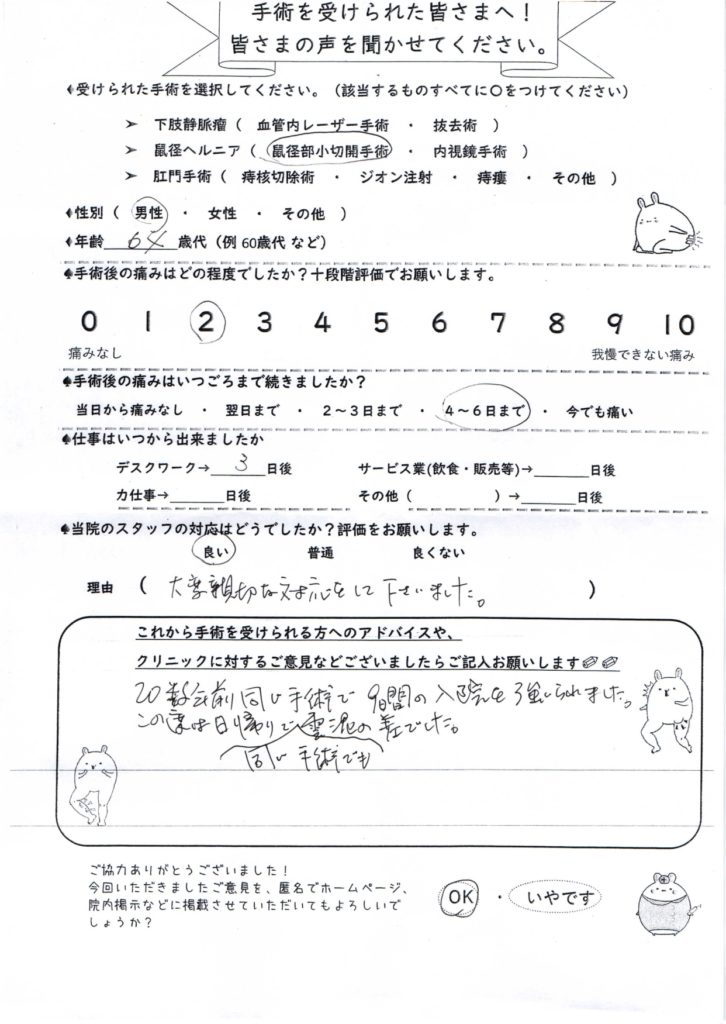 手術を受けられた皆さまへ！
皆さまの声を聞かせてください。
♦受けられた手術を選択してください。（該当するものすべてに〇をつけてください）
➤ 下肢静脈瘤（ 血管内レーザー手術 ・ 抜去術 ）
➤ 鼠径ヘルニア（ 鼠径部小切開手術 ・ 内視鏡手術 ）
➤ 肛門手術（ 痔核切除術 ・ ジオン注射 ・ 痔瘻 ・ その他 ）
♦性別（ 男性 ・ 女性 ・ その他 ）
♦年齢 歳代（例 60歳代 など）
♠手術後の痛みはどの程度でしたか？十段階評価でお願いします。
0 1 2 3 4 5 6 7 8 9 10
痛みなし 我慢できない痛み
♠手術後の痛みはいつごろまで続きましたか？
当日から痛みなし ・ 翌日まで ・ 2～3日まで ・ 4～6日まで ・ 今でも痛い
♠仕事はいつから出来ましたか
デスクワーク→ 3 日後 サービス業(飲食・販売等)→ 日後
力仕事→ 日後 その他（ ）→ 日後
♠当院のスタッフの対応はどうでしたか？評価をお願いします。
良い 普通 良くない
理由 （ 大変親切な対応をして下さいました。 ）
これから手術を受けられる方へのアドバイスや、
クリニックに対するご意見などございましたらご記入お願いします
20数年前同じ手術で 9日間の入院を強いられました。
この度は日帰りで雲泥の差でした。
同じ手術でも
ご協力ありがとうございました！
今回いただきましたご意見を、匿名でホームページ、
院内掲示などに掲載させていただいてもよろしいで
しょうか？
OK ・ いやです